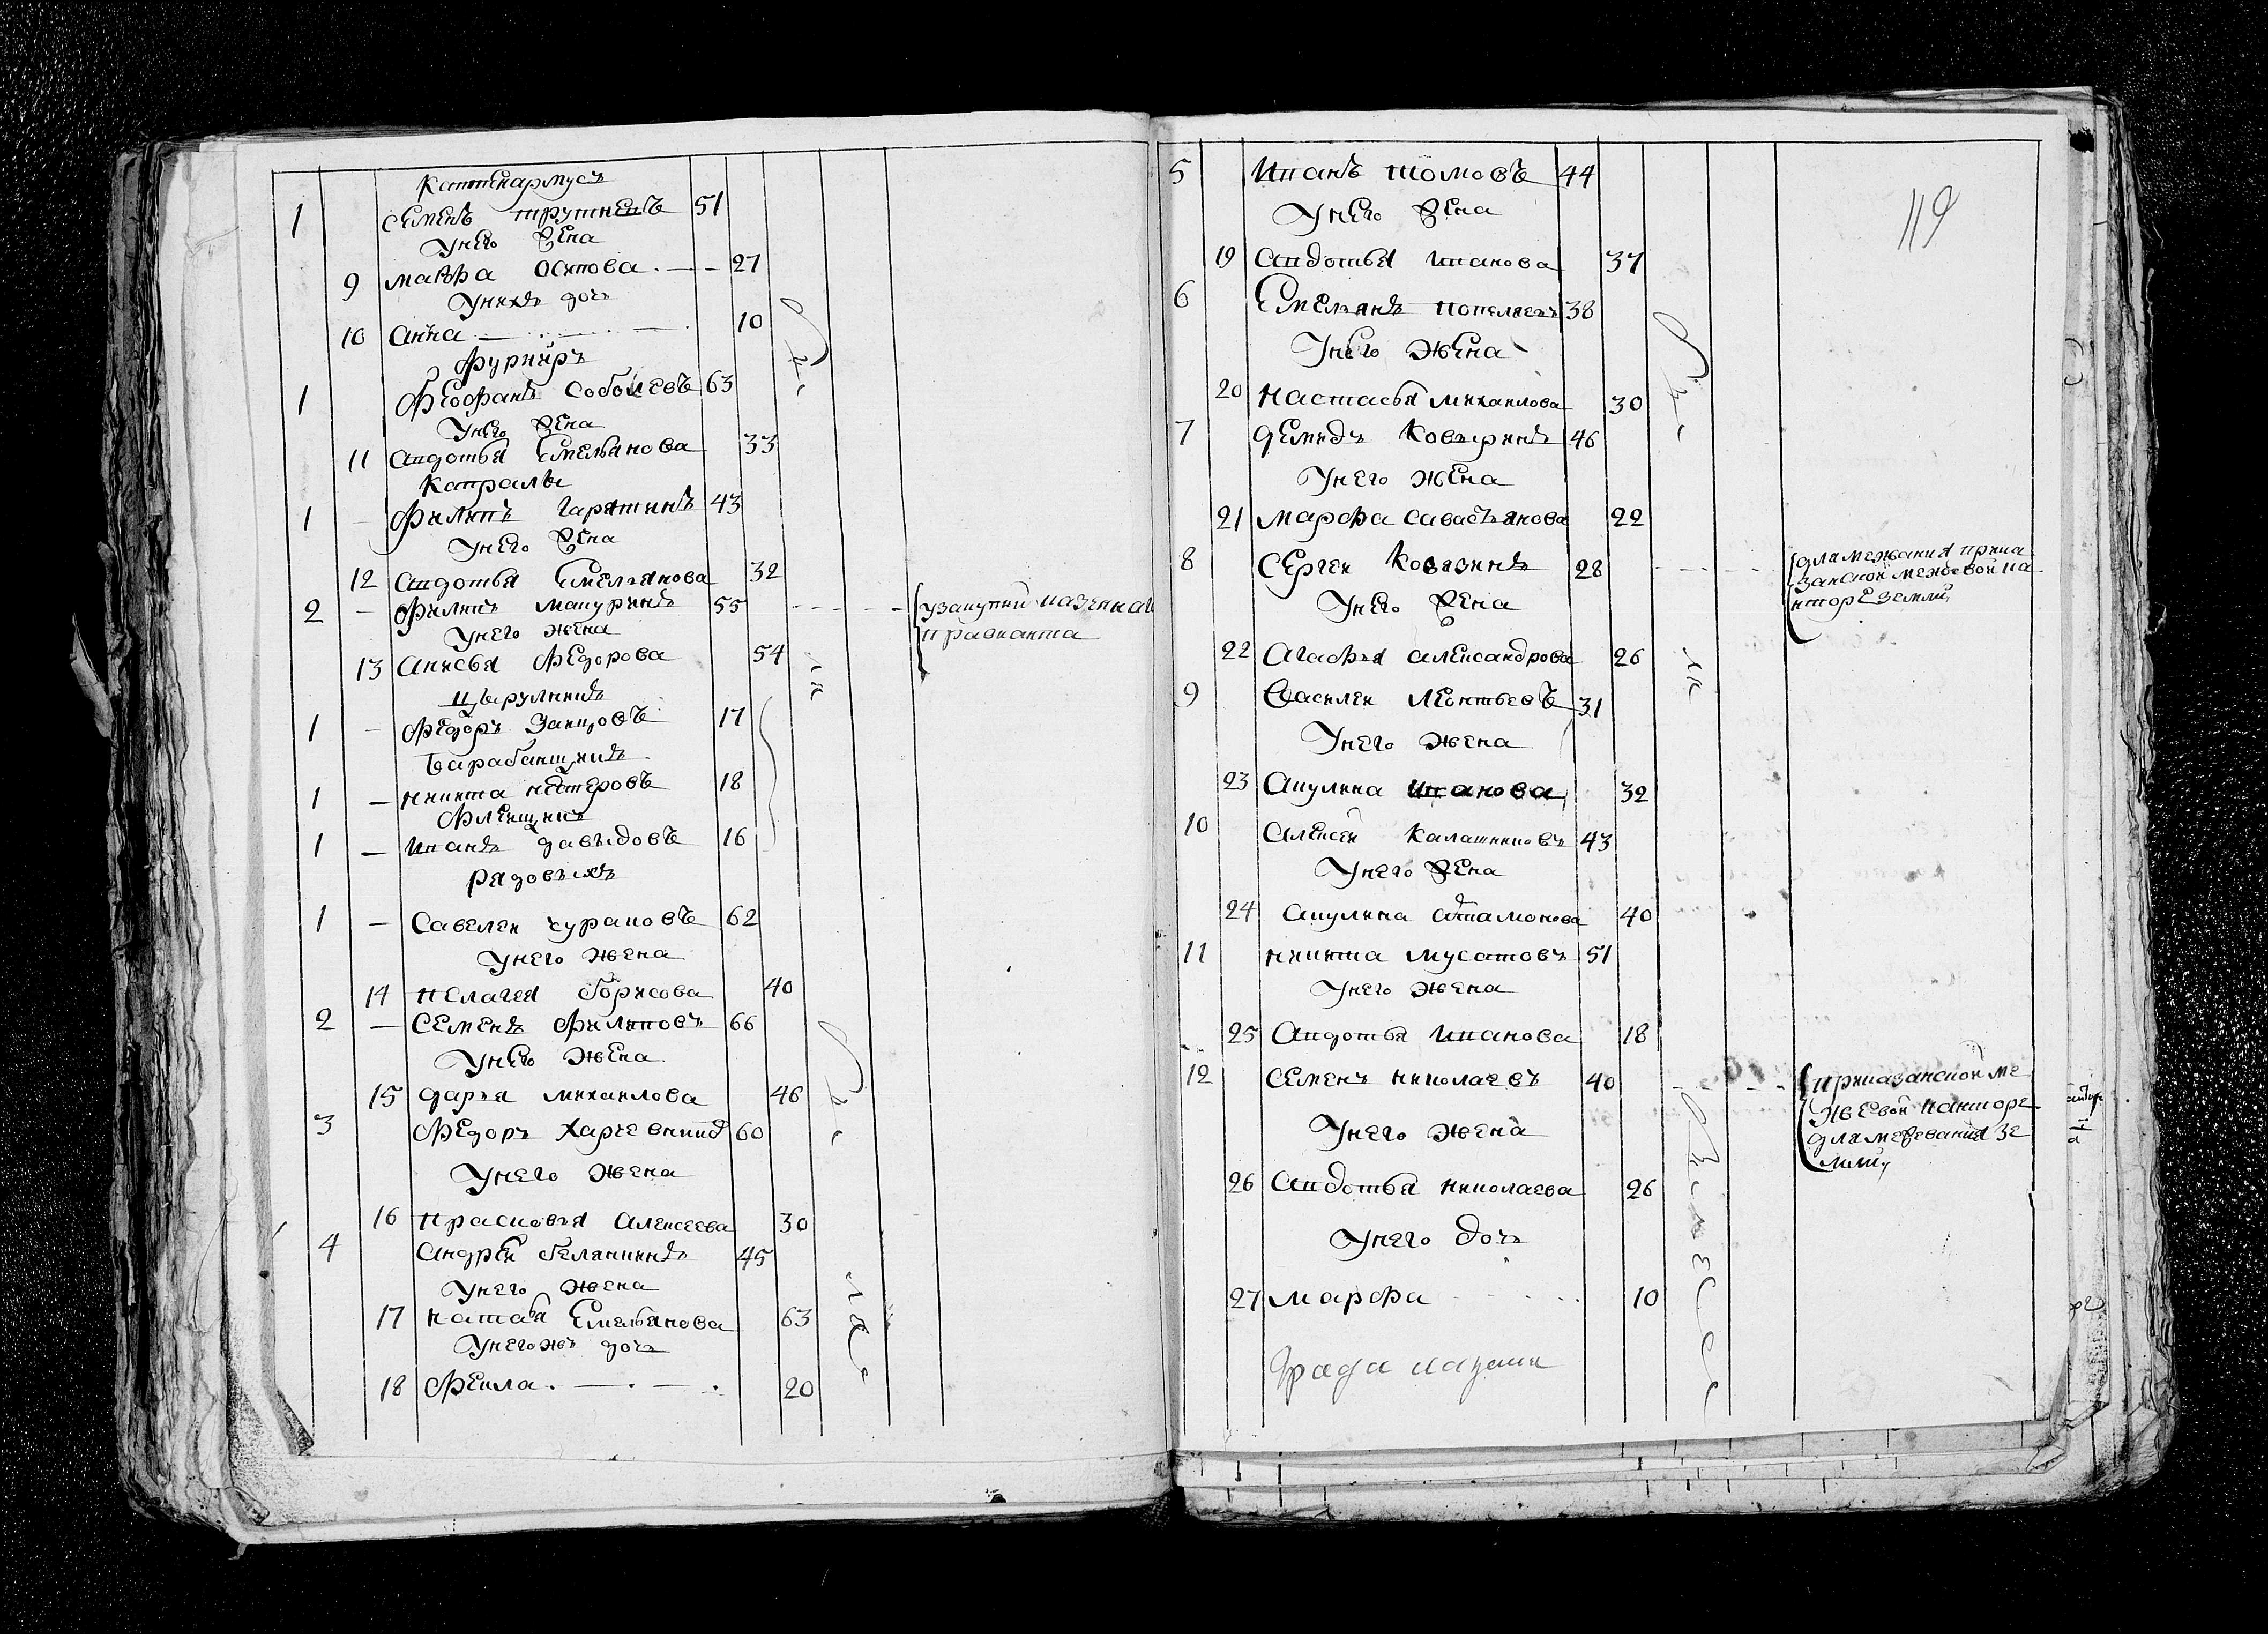 Каптенармусъ
1 Семенъ трутневъ 51
унего жена
9 марфа осипова 27
унихъ дочь
10 анна 10
фуриеръ
1 Феофанъ Соболевъ 63
унего жена
11 авдотья Емельянова 33
Капралы
1 Филипъ гарятинъ 43
унего жена
12 авдотья Емельянова 32
2 Филипъ мануринъ 55 узакупки казеннаго
провианта
унего жена
13 анисья Федорова 54
цырулникъ
1 Федоръ Заицовъ 17
барабанщикъ
1 никита нестеровъ 18
Флеищикъ
1 иванъ давыдовъ 16
рядовыхъ
1 Савелеи чураковъ 62
унего жена
14 пелагея борисова 40
2 Семенъ Филиповъ 66
унего жена
15 дарья михаилова 46
3 Федоръ Харчевникъ 60
унего жена
16 прасковья алексеева 30
4 андреи белянкинъ 45
унего жена
17 наталя Емельянова 63
унегожъ дочь
18 Фекла 20
119
5 иванъ шомовъ 44
унего жена
19 авдотья иванова 37
6 Емельянъ коневъ 38
унего жена
20 настасья михаилова 30
7 демидъ Ковыринъ 46
унего жена
21 марфа савастьянова 22
8 Сергеи Ковязинъ 28 для межевания прика
занской межевой ка
нторе земли
унего жена
22 агафья александрова 26
9 василеи леонтьевъ 31
унего жена
23 акулина иванова 32
10 алексеи Калашниковъ 43
унего жена
24 акулина артамонова 40
11 никита мусатовъ 51
унего жена
25 авдотья иванова 18
12 Семенъ николаевъ 40 приказанской ме
жевой канторе
для межевания зе
мли
унего жена
26 авдотья николаева 26
унего дочь
27 марфа 10
града казани